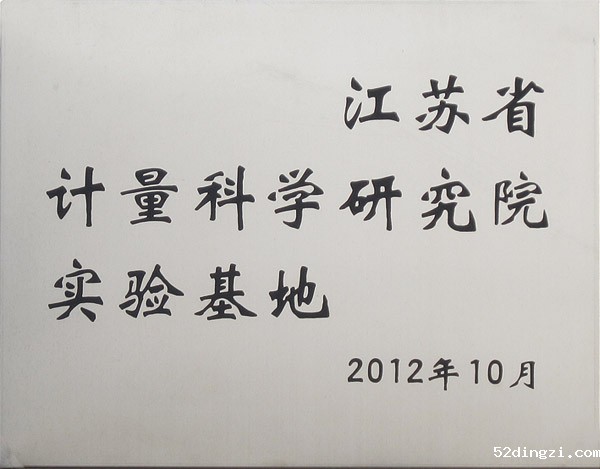 江苏省
计量科学研究院
实验基地
2012年10月
52dingzi.com